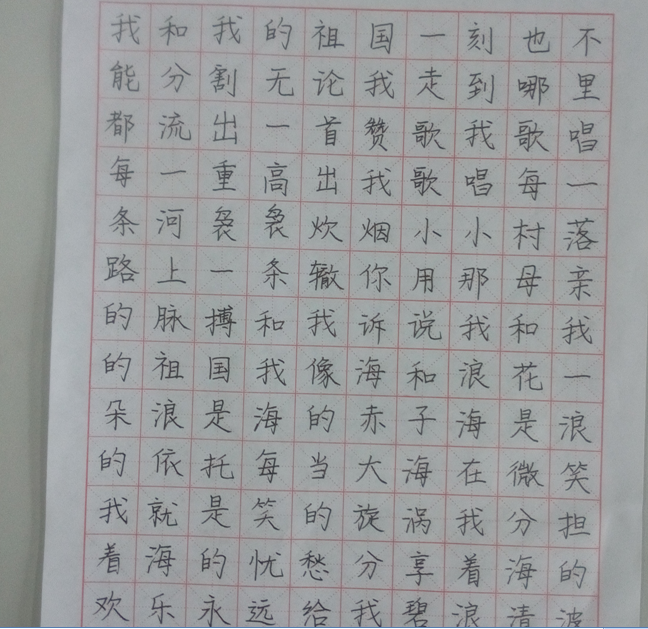 我和我的祖国一刻也不
能分割无论我走到哪里
都流出一首赞歌我歌唱
每一重高出我歌唱每一
条河袅袅炊烟小小村落
路上一条辙你用那母亲
的脉搏和我诉说我和我
的祖国我像海和浪花一
朵浪是海的赤子海是浪
的依托每当大海在微笑
我就是笑的旋涡我分担
着海的忧愁分享着海的
欢乐永远给我碧浪清波